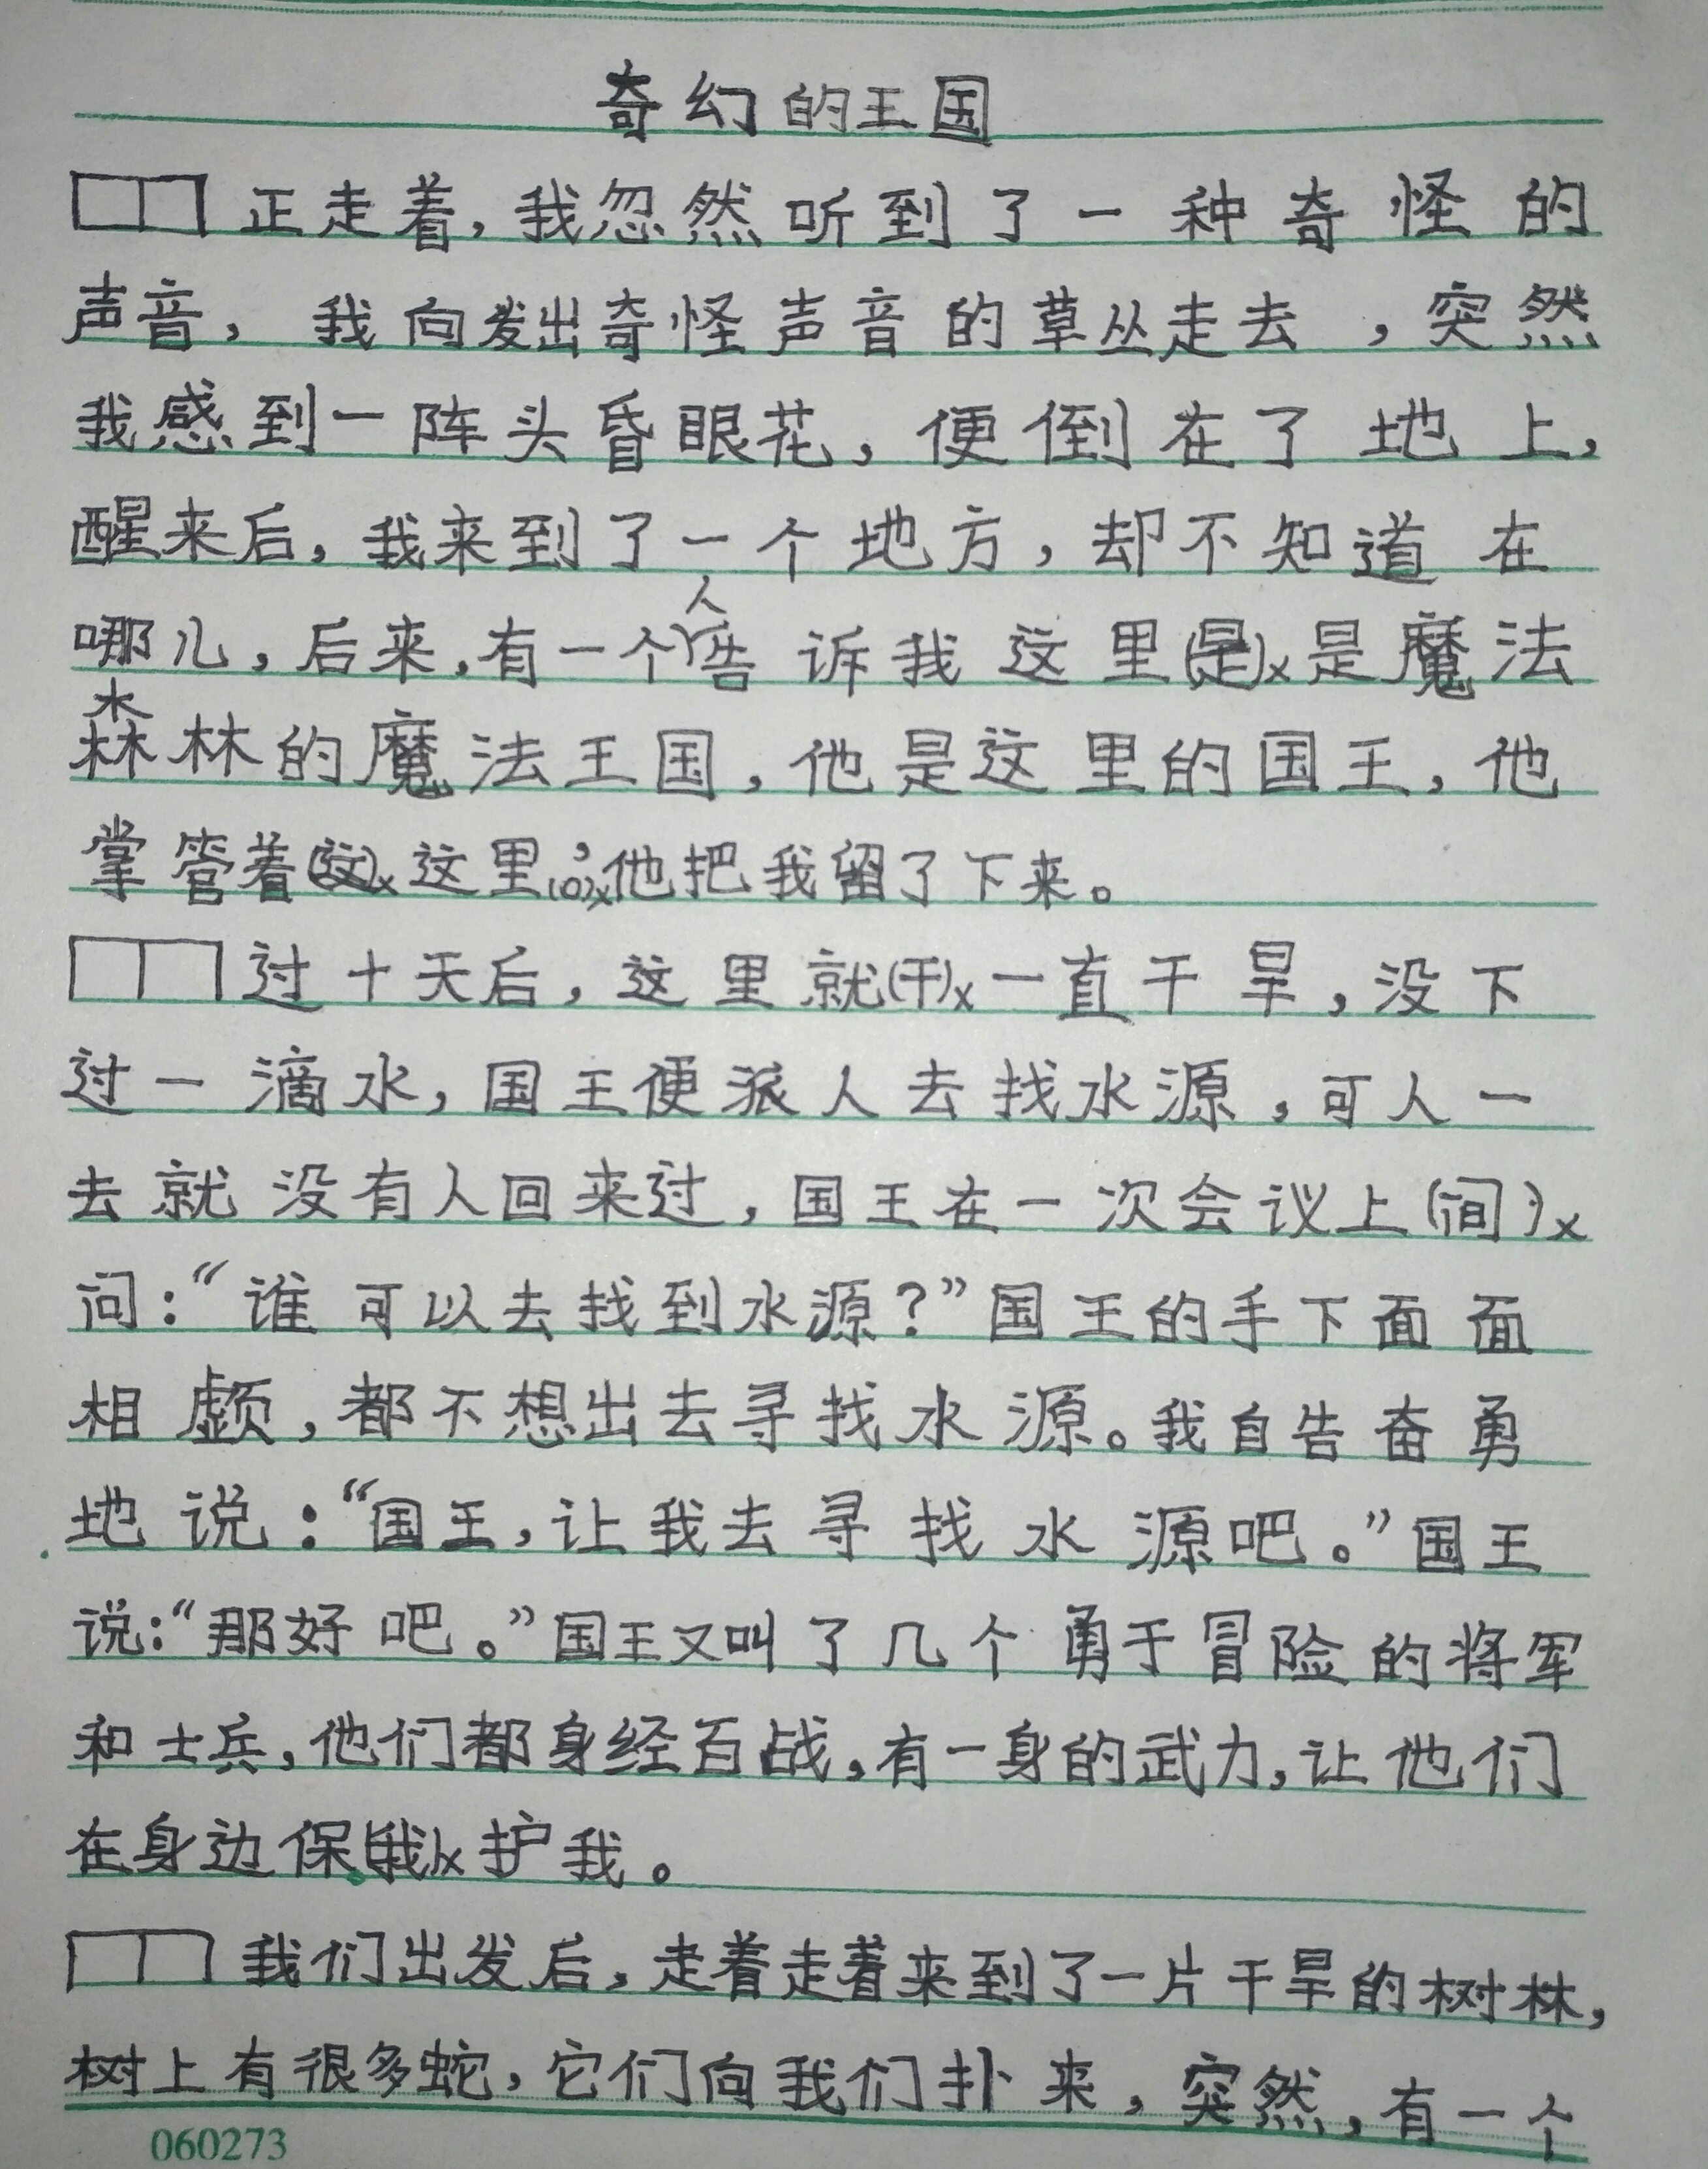 奇幻的王国
正走着，我忽然听到了一种奇怪的
声音，我向发出奇怪声音的草丛走去，突然
我感到一阵头昏眼花，便倒在了地上，
醒来后，我来到了一个地方，却不知道在
哪儿，后来，有一个人告诉我这里(是)x是魔法
森林的魔法王国，他是这里的国王，他
掌管着(这)x这里，(。)x他把我留了下来。
过十天后，这里就(干)x一直干旱，没下
过一滴水，国王便派人去找水源，可人一
去就没有人回来过，国王在一次会议上(间)x
问：“谁可以去找到水源？”国王的手下面面
相觑，都不想出去寻找水源。我自告奋勇
地说：“国王，让我去寻找水源吧。”国王
说：“那好吧。”国王又叫了几个勇于冒险的将军
和士兵，他们都身经百战，有一身的武力，让他们
在身边保(我)x护我。
我们出发后，走着走着来到了一片干旱的树林，
树上有很多蛇，它们向我们扑来，突然，有一个
060273